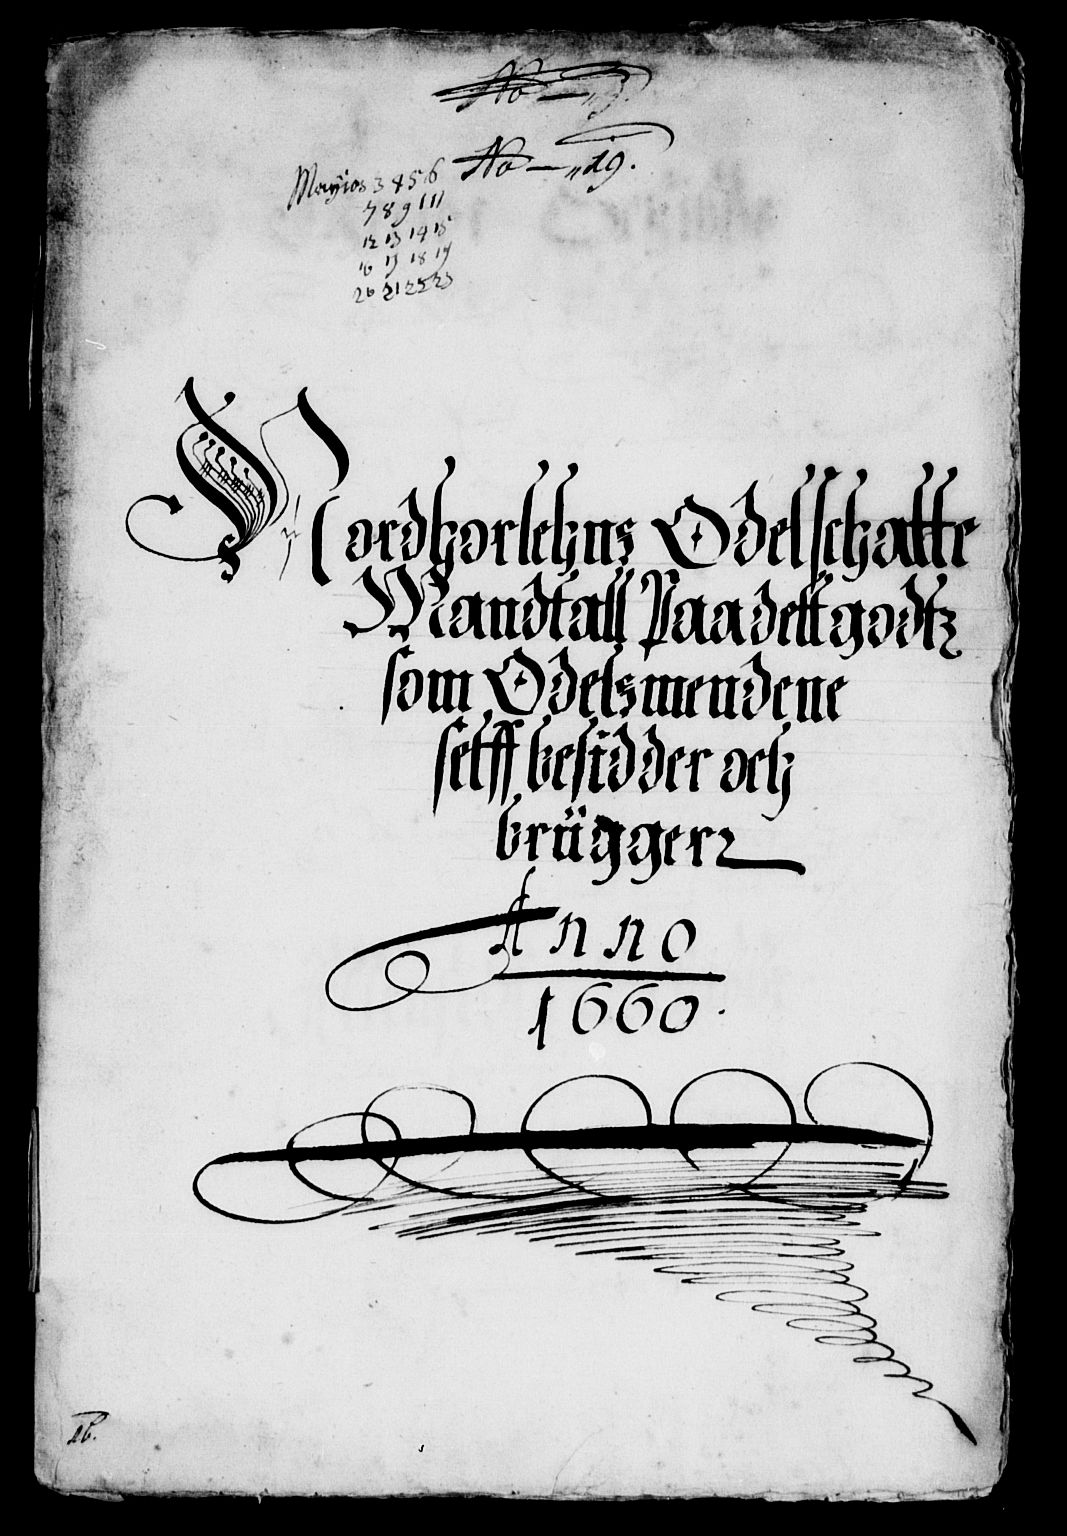 No — „9.
No — „19.
Mayios 3 4 5 6
7 8 9 1 11
12 13 14 15
16 17 18 19
20 21 22 23
Nordhorlehns Odelschatte
Mandtall Paa dett godtz
som Odelsmendene
selff besidder och
brügger
Anno
1660.
16.